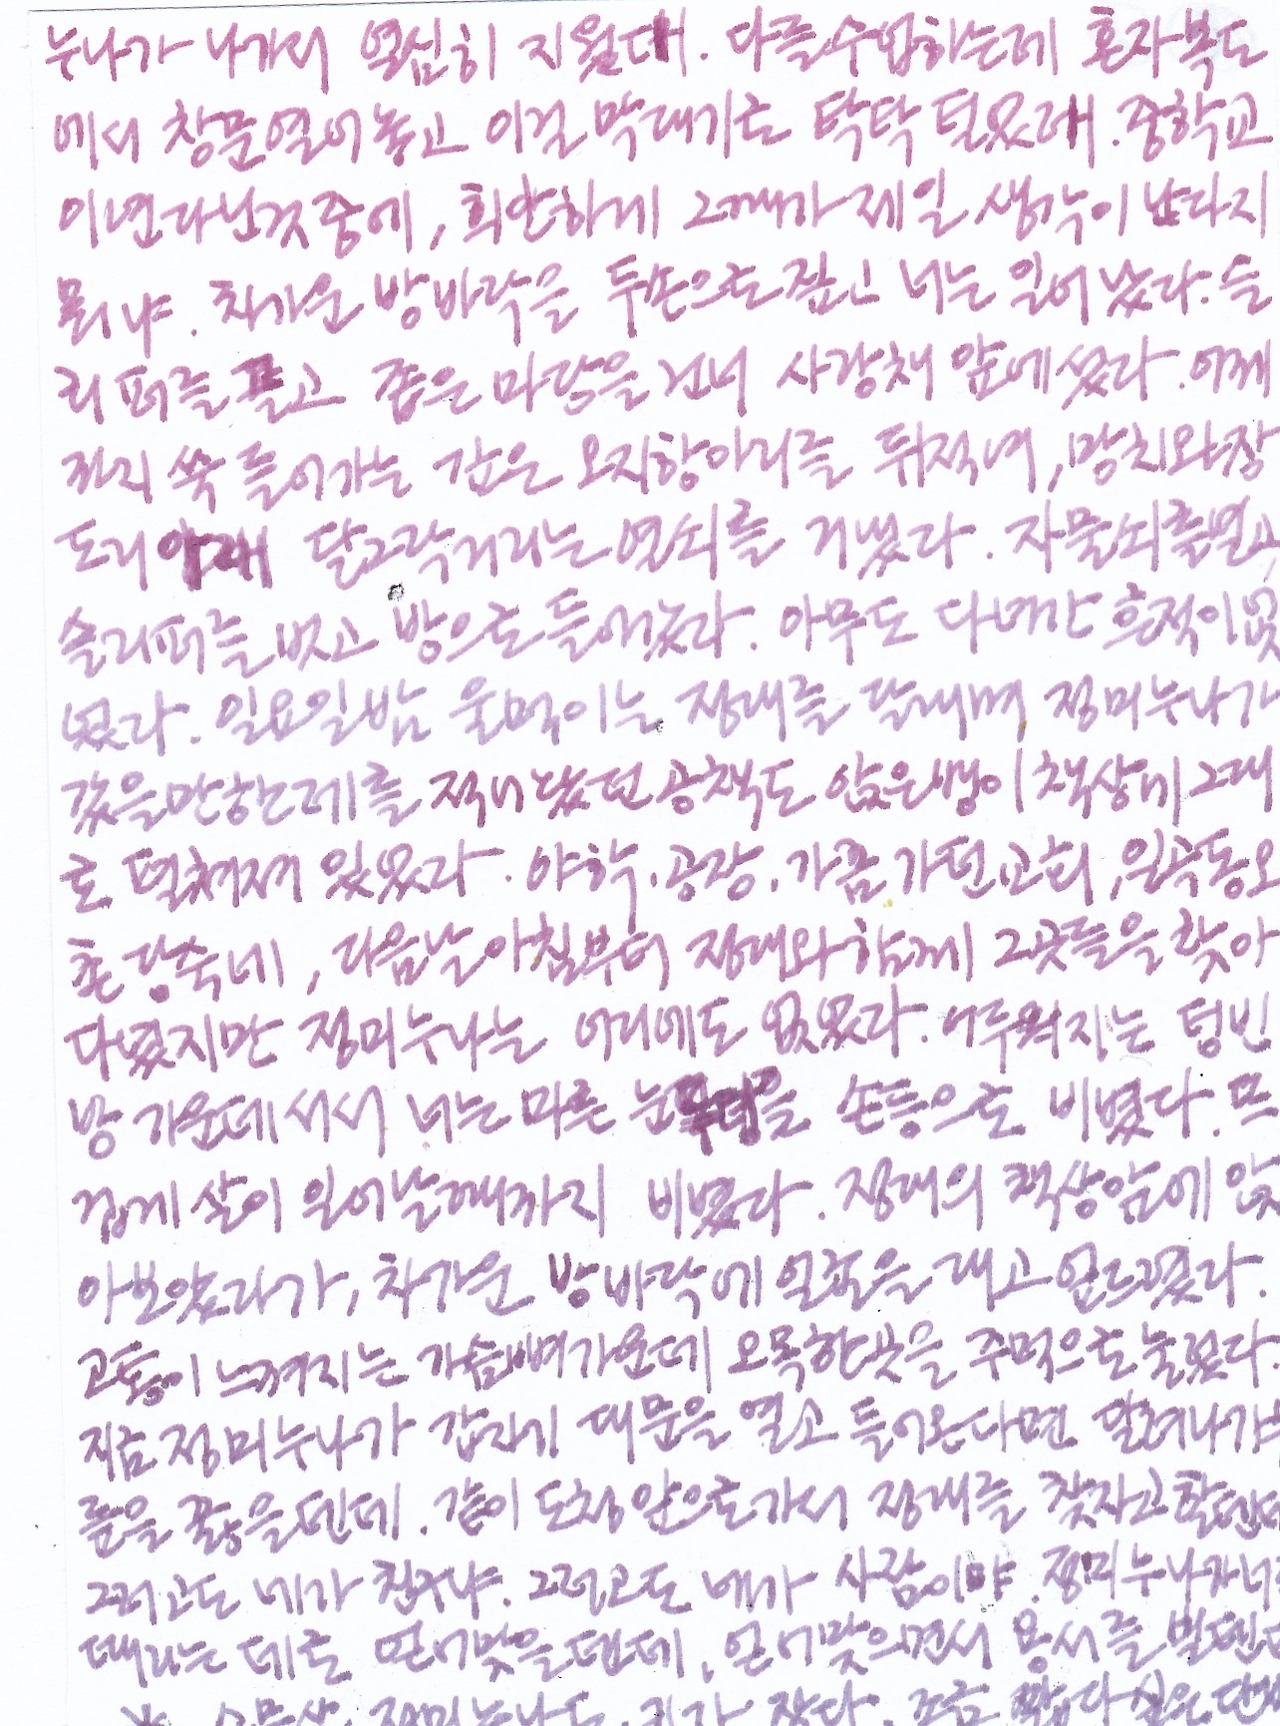 누나가 나가서 열심히 지웠대. 다들 수업하는데 혼자 복도
에서 창문 열어놓고 이걸 막대기로 탁탁 털었대. 중학교
이년 다닌 것 중에, 희안하게 그때가 제일 생각이 난다지
뭐냐. 차가운 방바닥을 두손으로 짚고 너는 일어났다. 슬
리퍼를 끌고 좁은 마당을 건너 사랑채 앞에 섰다. 어깨
까지 쑥 들어가는 깊은 오지항아리를 뒤적여, 망치와 장
도리 아래 달그락거리는 열쇠를 꺼냈다. 자물쇠를 열고
슬리퍼를 벗고 방으로 들어갔다. 아무도 다녀간 흔적이 없
었다. 일요일 밤 울먹이는 정대를 달래며 정미누나가
갔을만한 데를 적어 놨던 공책도 앉은뱅이 책상에 그대
로 펼쳐져 있었다. 야학. 공장. 가끔 가던 교회, 일곡동 오
촌 당숙네, 다음날 아침부터 정대와 함께 그곳들을 찾아
다녔지만 정미누나는 어디에도 없었다. 어두워지는 텅 빈
방 가운데 서서 너는 마른 눈두덩을 손등으로 비볐다. 뜨
겁게 살이 일어날때까지 비볐다. 정대의 책상앞에 앉
아보았다가, 차가운 방바닥에 얼굴을 대고 엎드렸다.
고통이 느껴지는 가슴뼈 가운데 오목한 곳을 주먹으로 눌렀다.
지금 정미누나가 갑자기 대문을 열고 들어온다면 달려나가
릎을 꿇을텐데. 같이 도청앞으로 가서 정대를 찾자고 할텐데
그러고도 네가 친구냐. 그러고도 네가 사람이야. 정미누나가 너
때리는 대로 얻어맞을텐데, 얻어맞으면서 용서를 빌텐데
정미누나도 키가 작다. 조금 짧다 싶은 단